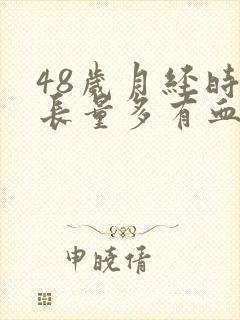 48歲月经時
長量多有血
申晓倩